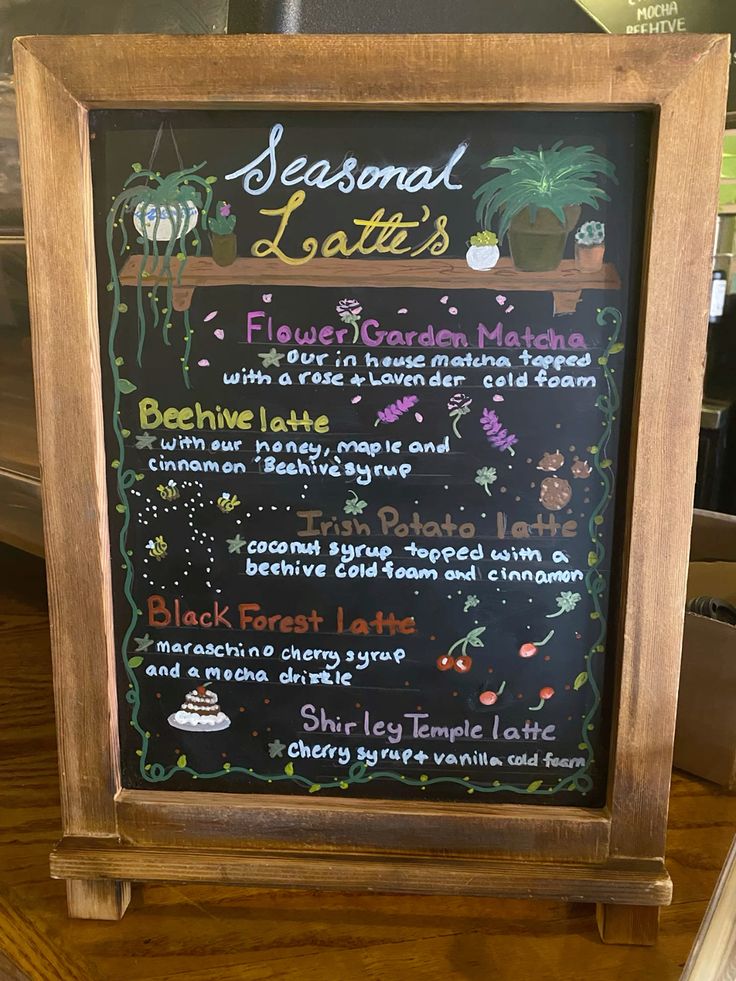 MOCHA
BEEHIVE
Seasonal
Latte's
Flower Garden Matcha
Our in house matcha topped
with a rose + Lavender cold foam
Beehive latte
with our honey, maple and
cinnamon 'Beehive' syrup
Irish Potato latte
coconut syrup topped with a
beehive cold foam and cinnamon
Black Forest latte
maraschino cherry syrup
and a mocha drizzle
Shirley Temple latte
cherry syrup + vanilla cold foam